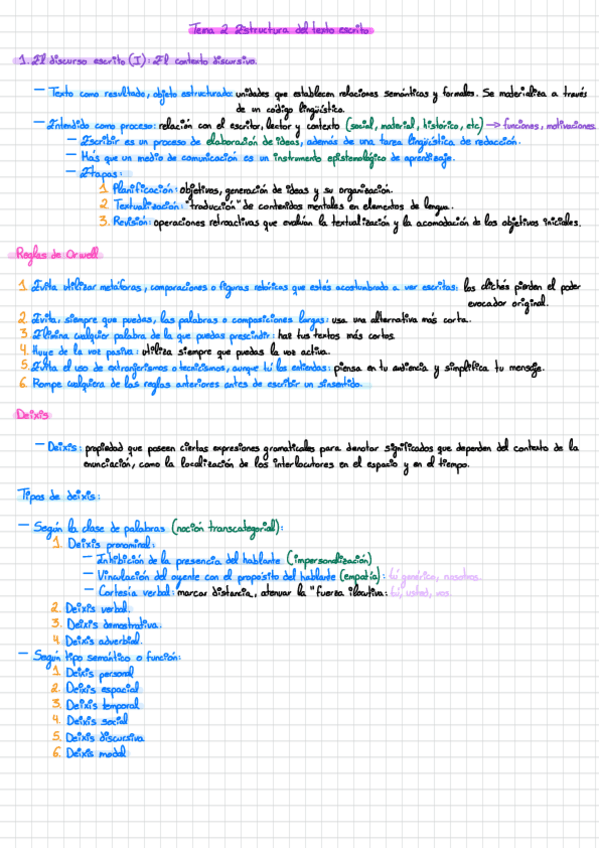 Tema 2 Estructura del texto escrito
1. El discurso escrito (I): El contexto discursivo.
— Texto como resultado, objeto estructurado: unidades que establecen relaciones semánticas y formales. Se materializa a través
de un código lingüístico.
— Entendido como proceso: relación con el escritor, lector y contexto (social, material, histórico, etc) → funciones, motivaciones
— Escribir es un proceso de elaboración de ideas, además de una tarea lingüística de redacción.
— Más que un medio de comunicación es un instrumento epistemológico de aprendizaje.
— Etapas:
1. Planificación: objetivos, generación de ideas y su organización.
2. Textualización: "traducción" de contenidos mentales en elementos de lengua.
3. Revisión: operaciones retroactivas que evalúan la textualización y la acomodación de los objetivos iniciales.
Reglas de Orwell
1. Evita utilizar metáforas, comparaciones o figuras retóricas que estés acostumbrado a ver escritas: los clichés pierden el poder
evocador original.
2. Evita, siempre que puedas, las palabras o composiciones largas: usa una alternativa más corta.
3. Elimina cualquier palabra de la que puedas prescindir: haz tus textos más cortos.
4. Huye de la voz pasiva: utiliza siempre que puedas la voz activa.
5. Evita el uso de extranjerismos o tecnicismos, aunque tú los entiendas: piensa en tu audiencia y simplifica tu mensaje.
6. Rompe cualquiera de las reglas anteriores antes de escribir un sinsentido.
Deixis
— Deixis: propiedad que poseen ciertas expresiones gramaticales para denotar significados que dependen del contexto de la
enunciación, como la localización de los interlocutores en el espacio y en el tiempo.
Tipos de deixis:
— Según la clase de palabras (noción transcategorial):
1. Deixis pronominal:
— Inhibición de la presencia del hablante (impersonalización)
— Vinculación del oyente con el propósito del hablante (empatía): tú genérico, nosotros.
— Cortesía verbal: marcar distancia, atenuar la "fuerza ilocutiva: tú, usted, vos.
2. Deixis verbal.
3. Deixis demostrativa.
4. Deixis adverbial.
— Según tipo semántico o función:
1. Deixis personal
2. Deixis espacial
3. Deixis temporal
4. Deixis social
5. Deixis discursiva
6. Deixis modal